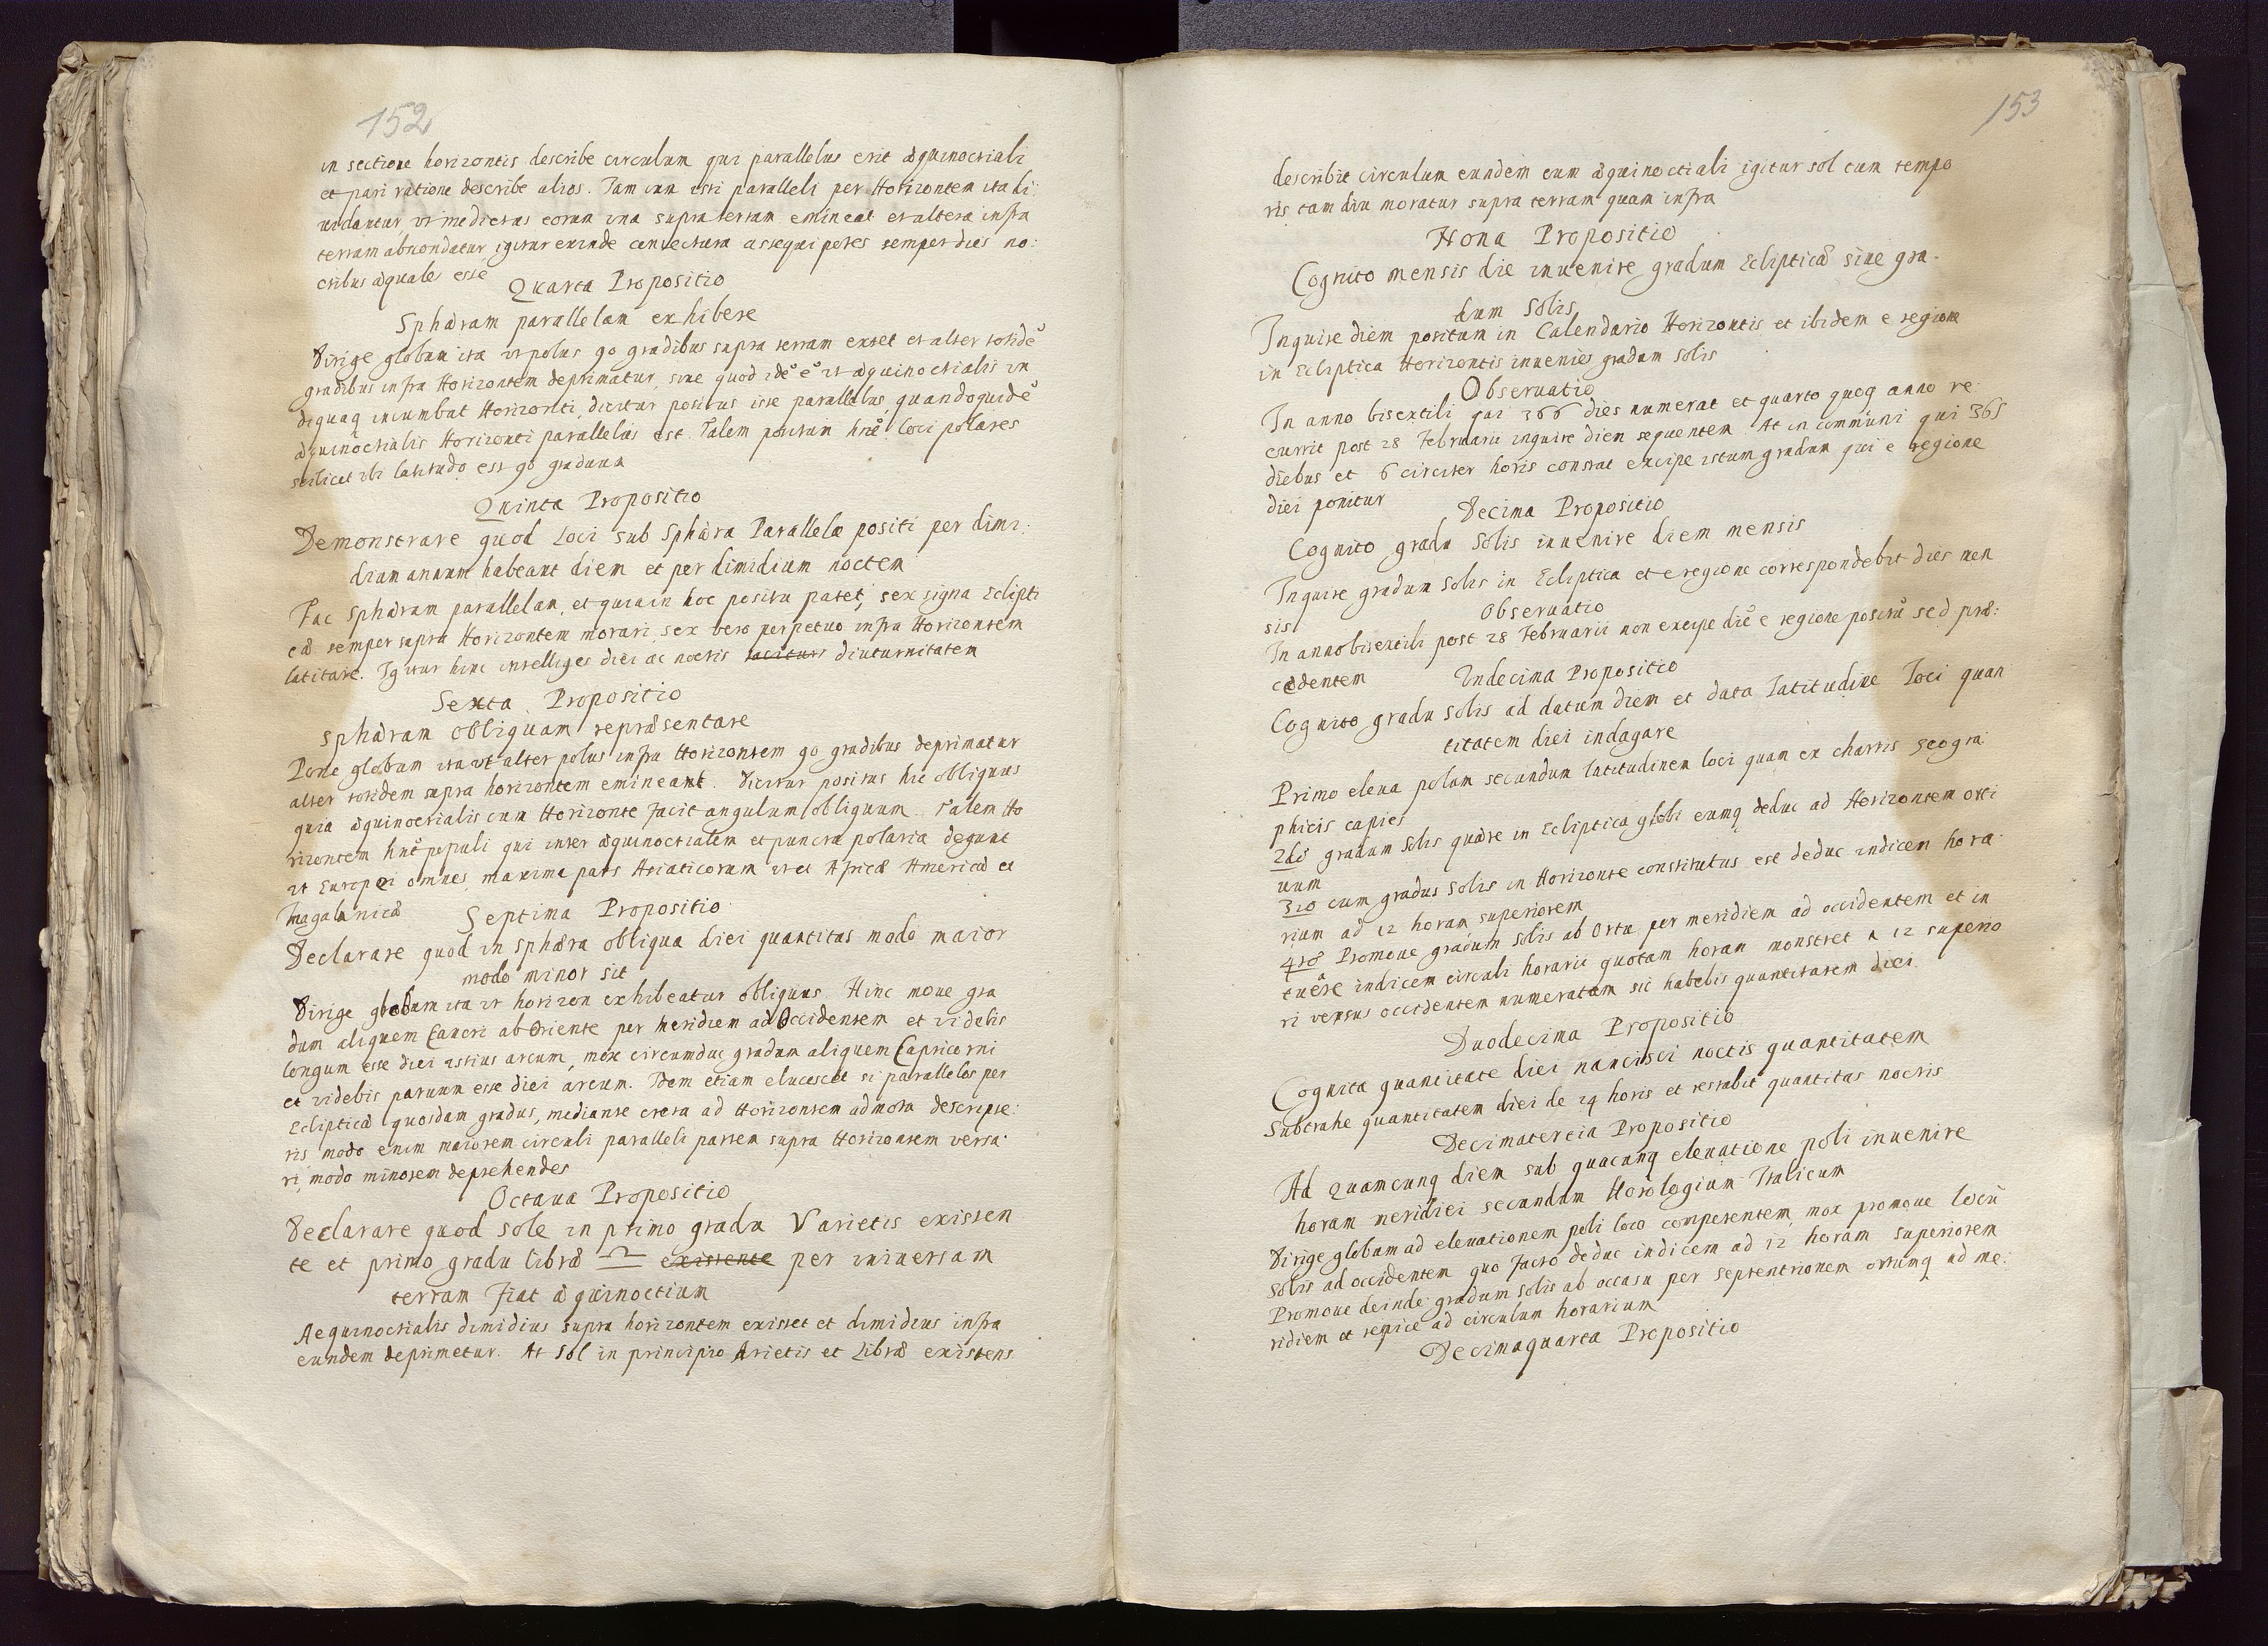 152
in sectione horizontis describe circulum qui parallelus erit æquinoctiali
et pari ratione describe alios. Iam cum isti paralleli per Horizontem ita di:
uidantur, ut medietas eorum una supra terram emineat et altera infra
terram abscondatur, igitur exinde coniectura assequi potes semper dies no:
ctibus æquales esse
Quarta Propositio
Sphæram parallelam exhibere
Dirige globum ita ut polus 90 gradibus supra terram extet et alter totidē
gradibus infra Horizontem deprimatur, siue quod idē ē ut æquinoctialis un
diquaq incumbat Horizonti, dicitur positus iste parallelus, quandoquidē
æquinoctialis Horizonti parallelus est. Talem positum hnt Loci polares
scilicet ubi latitudo est 90 graduum
Quinta Propositio
Demonstrare quod Loci sub Sphæra Parallela positi per dimi:
dium annum habeant diem et per dimidium noctem
Fac Sphæram parallelam, et quia in hoc positu patet, sex signa Eclipti
cæ semper supra Horizontem morari, sex vero perpetuo infra Horizontem
latitare. Igitur hinc intelliges diei ac noctis diuturnitatem
Sexta Propositio
Sphæram obliquam repræsentare
Pone globum ita ut alter polus infra Horizontem 90 gradibus deprimatur
alter totidem supra horizontem emineant. Dicitur positus hic obliquus
quia æquinoctialis cum Horizonte facit angulum obliquum. Talem Ho
rizontem hnt populi qui inter æquinoctialem et puncta polaria degunt
ut Europæi omnes, maxima pars Asiaticorum ut et Africæ Americæ et
Magalanicæ
Septima Propositio
Declarare quod in sphæra obliqua diei quantitas modo maior
modo minor sit
Dirige globum ita ut horizon exhibeatur obliquus. Hinc moue gra
dum aliquem Cancri ab Oriente per meridiem ad Occidentem et videbis
longum esse diei istius arcum, mox circumduc gradum aliquem Capricorni
et videbis paruum esse diei arcum. Idem etiam elucescet si parallelos per
Eclipticæ quosdam gradus, mediante creta ad Horizontem admota descripse:
ris modo enim maiorem circuli paralleli partem supra Horizontem versa:
ri, modo minorem deprehendes
Octaua Propositio
Declarare quod sole in primo gradu V arietis existen
te et primo gradu libræ ♎ existente per uniuersam
terram fiat æquinoctium
Aequinoctialis dimidius supra horizontem existet et dimidius infra
eundem deprimetur. At Sol in principio Arietis et Libræ existens
153
describit circulum eundem cum æquinoctiali igitur sol tum tempo
ris tam diu moratur supra terram quam infra
Nona Propositio
Cognito mensis die inuenire gradum Eclipticæ siue gra-
dum Solis
Inquire diem positum in Calendario Horizontis et ibidem e regione
in Ecliptica Horizontis inuenies gradum Solis
Obseruatio
In anno bisextili qui 366 dies numerat et quarto quoq anno re:
currit post 28 Februarii inquire diem sequentem. At in communi qui 365
diebus et 6 circiter horis constat excipe istum gradum qui e regione
diei ponitur
Decima Propositio
Cognito gradu Solis inuenire diem mensis
Inquire gradum Solis in Ecliptica et e regione correspondebit dies men
sis
Obseruatio
In anno bisextili post 28 Februarii non excipe diē e regione positū sed præ:
cedentem
Undecima Propositio
Cognito gradu Solis ad datum diem et data Latitudine Loci quan
titatem diei indagare
Primo eleua polum secundum latitudinem loci quam ex chartis geogra:
phicis capies
2do gradum Solis quære in Ecliptica globi eumq deduc ad Horizontem orti
uum
3tio cum gradus Solis in Horizonte constitutus est deduc indicem hora:
rium ad 12 horam superiorem
4to Promoue gradum Solis ab Ortu per meridiem ad occidentem et in
tuēre indicem circuli horarii quotam horam monstret a 12 superio
ri versus occidentem numeratam sic habebis quantitatem diei
Duodecima Propositio
Cognita quantitate diei nancisci noctis quantitatem
Subtrahe quantitatem diei de 24 horis et restabit quantitas noctis
Decimatertia Propositio
Ad quamcunq diem sub quacunq eleuatione poli inuenire
horam meridiei secundum Horologium Italicum
Dirige globum ad eleuationem poli loco competentem, mox promoue locū
Solis ad occidentem quo facto deduc indicem ad 12 horam superiorem
Promoue deinde gradum solis ab occasu per septentrionem ortumq ad me:
ridiem et respice ad circulum horarium
Decimaquarta Propositio